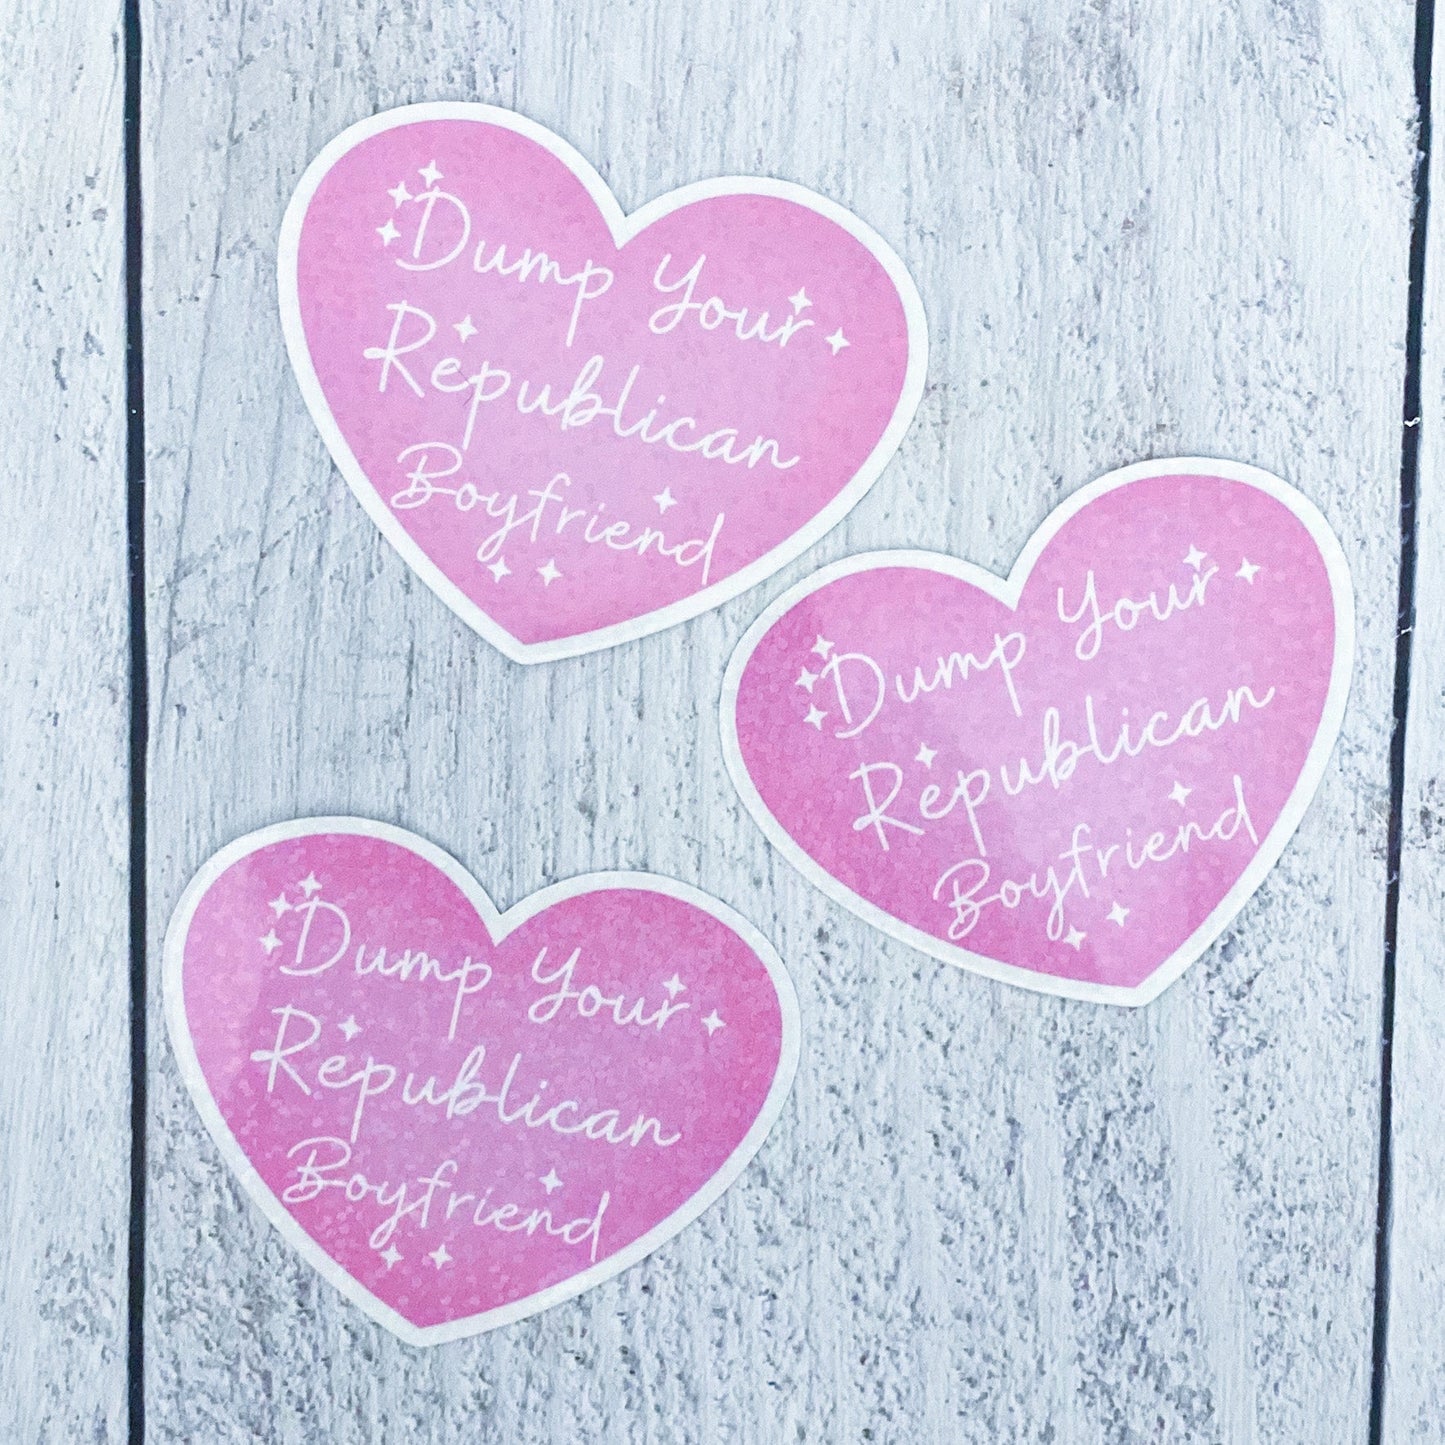 Dump Your
Republican
Boyfriend
Dump Your
Republican
Boyfriend
Dump Your
Republican
Boyfriend